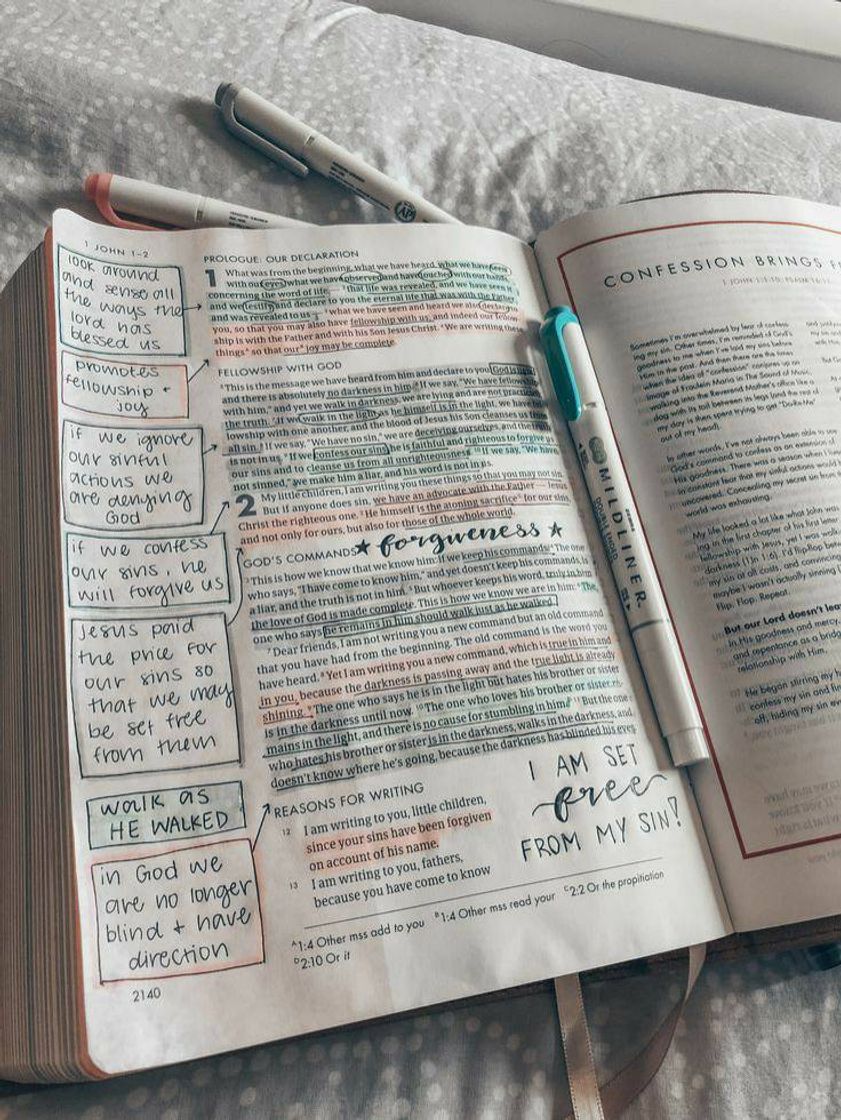 1 JOHN 1-2
look around
and sense all
the ways the
lord has
blessed us
promotes
fellowship +
joy
if we ignore
our sinful
actions we
are denying
God
if we confess
our sins, he
will forgive us
Jesus paid
the price for
our sins so
that we may
be set free
from them
walk as
HE WALKED
in God we
are no longer
blind + have
direction
2140
PROLOGUE: OUR DECLARATION
1 What was from the beginning, what we have heard, what we have seen
with our eyes, what we have observed and have touched with our hands,
concerning the word of life — ² that life was revealed, and we have seen it
and we testify and declare to you the eternal life that was with the Father
and was revealed to us — ³ what we have seen and heard we also declare to
you, so that you may also have fellowship with us; and indeed our fellow-
ship is with the Father and with his Son Jesus Christ. ⁴ We are writing these
things ᴬ so that our ᴮ joy may be complete.
FELLOWSHIP WITH GOD
⁵ This is the message we have heard from him and declare to you: God is light,
and there is absolutely no darkness in him. ⁶ If we say, "We have fellowship
with him," and yet we walk in darkness, we are lying and are not practicing
the truth. ⁷ If we walk in the light as he himself is in the light, we have fel-
lowship with one another, and the blood of Jesus his Son cleanses us from
all sin. ⁸ If we say, "We have no sin," we are deceiving ourselves, and the truth
is not in us. ⁹ If we confess our sins, he is faithful and righteous to forgive us
our sins and to cleanse us from all unrighteousness. ¹⁰ If we say, "We have
not sinned," we make him a liar, and his word is not in us.
2 My little children, I am writing you these things so that you may not sin.
But if anyone does sin, we have an advocate with the Father — Jesus
Christ the righteous one. ² He himself is the atoning sacrifice ᶜ for our sins,
and not only for ours, but also for those of the whole world.
★ forgiveness ★
GOD'S COMMANDS
³ This is how we know that we know him: if we keep his commands. ⁴ The one
who says, "I have come to know him," and yet doesn't keep his commands, is
a liar, and the truth is not in him. ⁵ But whoever keeps his word, truly in him
the love of God is made complete. This is how we know we are in him: ⁶ The
one who says he remains in him should walk just as he walked.
⁷ Dear friends, I am not writing you a new command but an old command
that you have had from the beginning. The old command is the word you
have heard. ⁸ Yet I am writing you a new command, which is true in him and
in you, because the darkness is passing away and the true light is already
shining. ⁹ The one who says he is in the light but hates his brother or sister
is in the darkness until now. ¹⁰ The one who loves his brother or sister re-
mains in the light, and there is no cause for stumbling in him. ᴰ ¹¹ But the one
who hates his brother or sister is in the darkness, walks in the darkness, and
doesn't know where he's going, because the darkness has blinded his eyes.
REASONS FOR WRITING
¹² I am writing to you, little children,
since your sins have been forgiven
on account of his name.
¹³ I am writing to you, fathers,
because you have come to know
I AM SET
free
FROM MY SIN!
ᴬ1:4 Other mss add to you ᴮ1:4 Other mss read your ᶜ2:2 Or the propitiation
ᴰ2:10 Or it
ZEBRA
MILDLINER
DOUBLE ENDED
CONFESSION BRINGS
1 JOHN 1:1-10; PSALM
Sometimes I'm overwhelmed by fear of confess-
ing my sin. Other times, I'm reminded of God's
goodness to me when I've laid my sins before
Him in the past. And then there are the times
when the idea of "confession" conjures up an
image of Fraulein Maria in The Sound of Music,
walking into the Reverend Mother's office like a
dog with its tail between its legs (and the rest of
my day is then spent trying to get "Do-Re-Me"
out of my head).
In other words, I've not always been able to see
God's command to confess as an extension of
His goodness. There was a season when I lived
in constant fear that my sinful actions would be
uncovered. Concealing my secret sin from the
world was exhausting.
My life looked a lot like what John was
ing in the first chapter of his first letter
fellowship with Jesus, yet I was walk
darkness (1Jn 1:6). I'd flip-flop betw
my sin at all costs, and convincing
maybe I wasn't actually sinning
Flip. Flop. Repeat.
But our Lord doesn't lea
In His goodness and mercy,
and repentance as a bridg
relationship with Him.
He began stirring my h
confess my sin and fin
off, hiding my sin eve